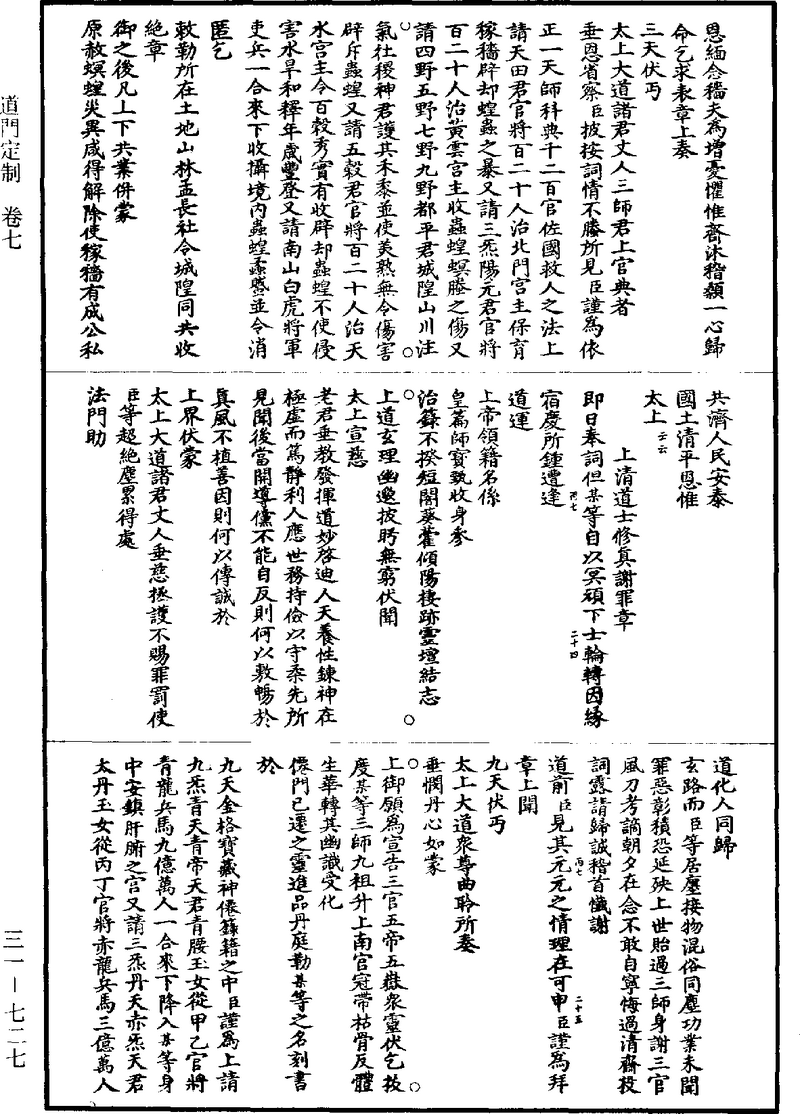 恩緬念穡夫為增憂懼惟齋沐稽顙一心歸
命乞求表章上奏
三天伏丐
太上大道諸君丈人三師君上官典者
垂恩省察臣披按詞情不勝所見臣謹為依
正一天師科典千二百官佐國救人之法上
請天田君官將百二十人治北門宮主保育
稼穡辟却蝗蟲之暴又請三炁陽元君官將
百二十人治黃雲宮主收蟲蝗螟螣之傷又
請四野五野七野九野都平君城隍山川注
氣社稷神君護其禾黍並使美熟無令傷害
辟斥蟲蝗又請五穀君官將百二十人治天
水宮主令百穀秀實有收辟却蟲蝗不使侵
害水旱和釋年歲豐登又請南山白虎將軍
吏兵一合來下收攝境內蟲蝗並令消
匿乞
敕勒所在土地山林孟長社令城隍同共收
絕章
御之後凡上下共業併蒙
原赦螟蝗災異咸得解除使稼穡有成公私
共濟人民安泰
國土清平恩惟
太上云云
上清道士修真謝罪章
即日奉詞但某等自以冥頑下士輪轉因緣
二十四
宿慶所鍾遭逢
丙七
道運
上帝領籍名係
皇篇師寶甄收身參
治籙不揆短闇葵藿傾陽棲跡靈壇結志
上道玄理幽邈披眄無窮伏聞
太上宣慈
老君垂教發揮道妙啓迪人天養性鍊神在
極虛而篤靜利人應世務持儉以守柔先所
見聞後當開導儻不能自反則何以敷暢於
真風不植善因則何以傳誠於
上界伏蒙
太上大道諸君丈人垂慈拯護不賜罪罰使
臣等超絕塵累得處
法門助
道化人同歸
玄路而臣等居塵接物混俗同塵功業未聞
罪惡彰積恐延殃上世貽過三師身謝三官
風刀考謫朝夕在念不敢自寧悔過清齋投
詞露請歸誠稽首懺謝
丙七
道前臣見其元元之情理在可申臣謹為拜
二十五
章上聞
九天伏丐
太上大道衆尊曲聆所奏
垂憫丹心如蒙
上御願為宣告三官五帝五嶽衆靈伏乞拔
度某等三師九祖升上南宮冠帶枯骨反體
生華轉其幽識受化
僊門已遷之靈進品丹庭勒某等之名刻書
於
九天金格寶藏神僊籙籍之中臣謹為上請
九炁青天青帝天君青腰玉女從甲乙官將
青龍兵馬九億萬人一合來下降入某等身
中安鎮肝腑之宮又請三炁丹天赤炁天君
太丹玉女從丙丁官將赤龍兵馬三億萬人
道門定制 卷七
三一—七二七